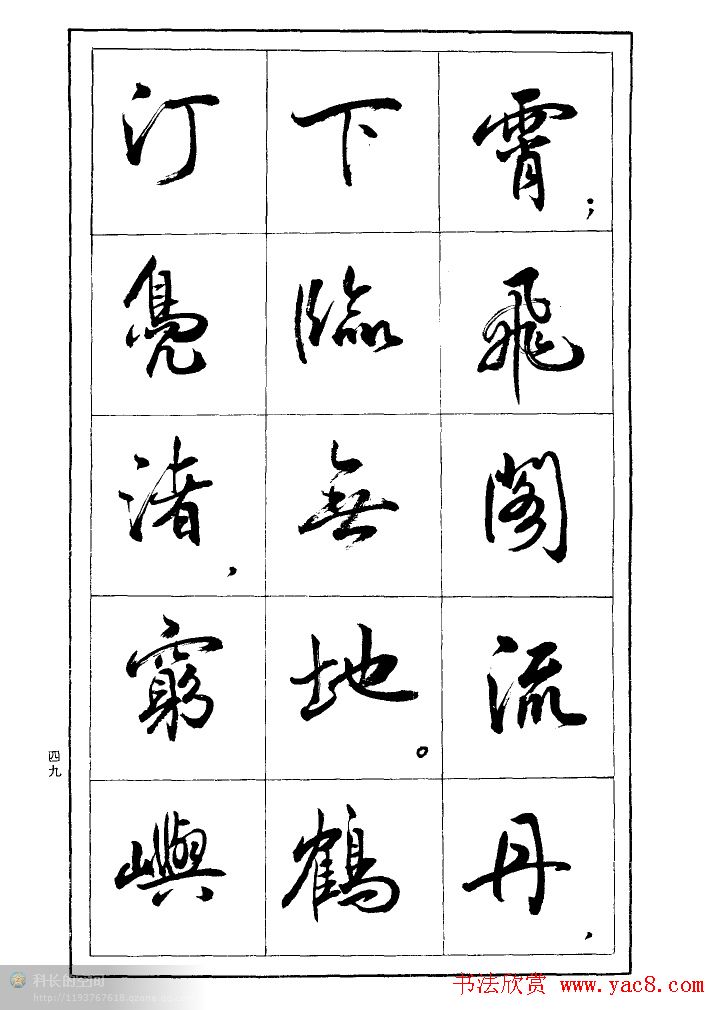 霄；飛閣流丹，
下臨無地。鶴
汀鳧渚，窮嶼
四九
科长的空间
http://1193767618.qzone.qq.com
书法欣赏 www.yac8.com